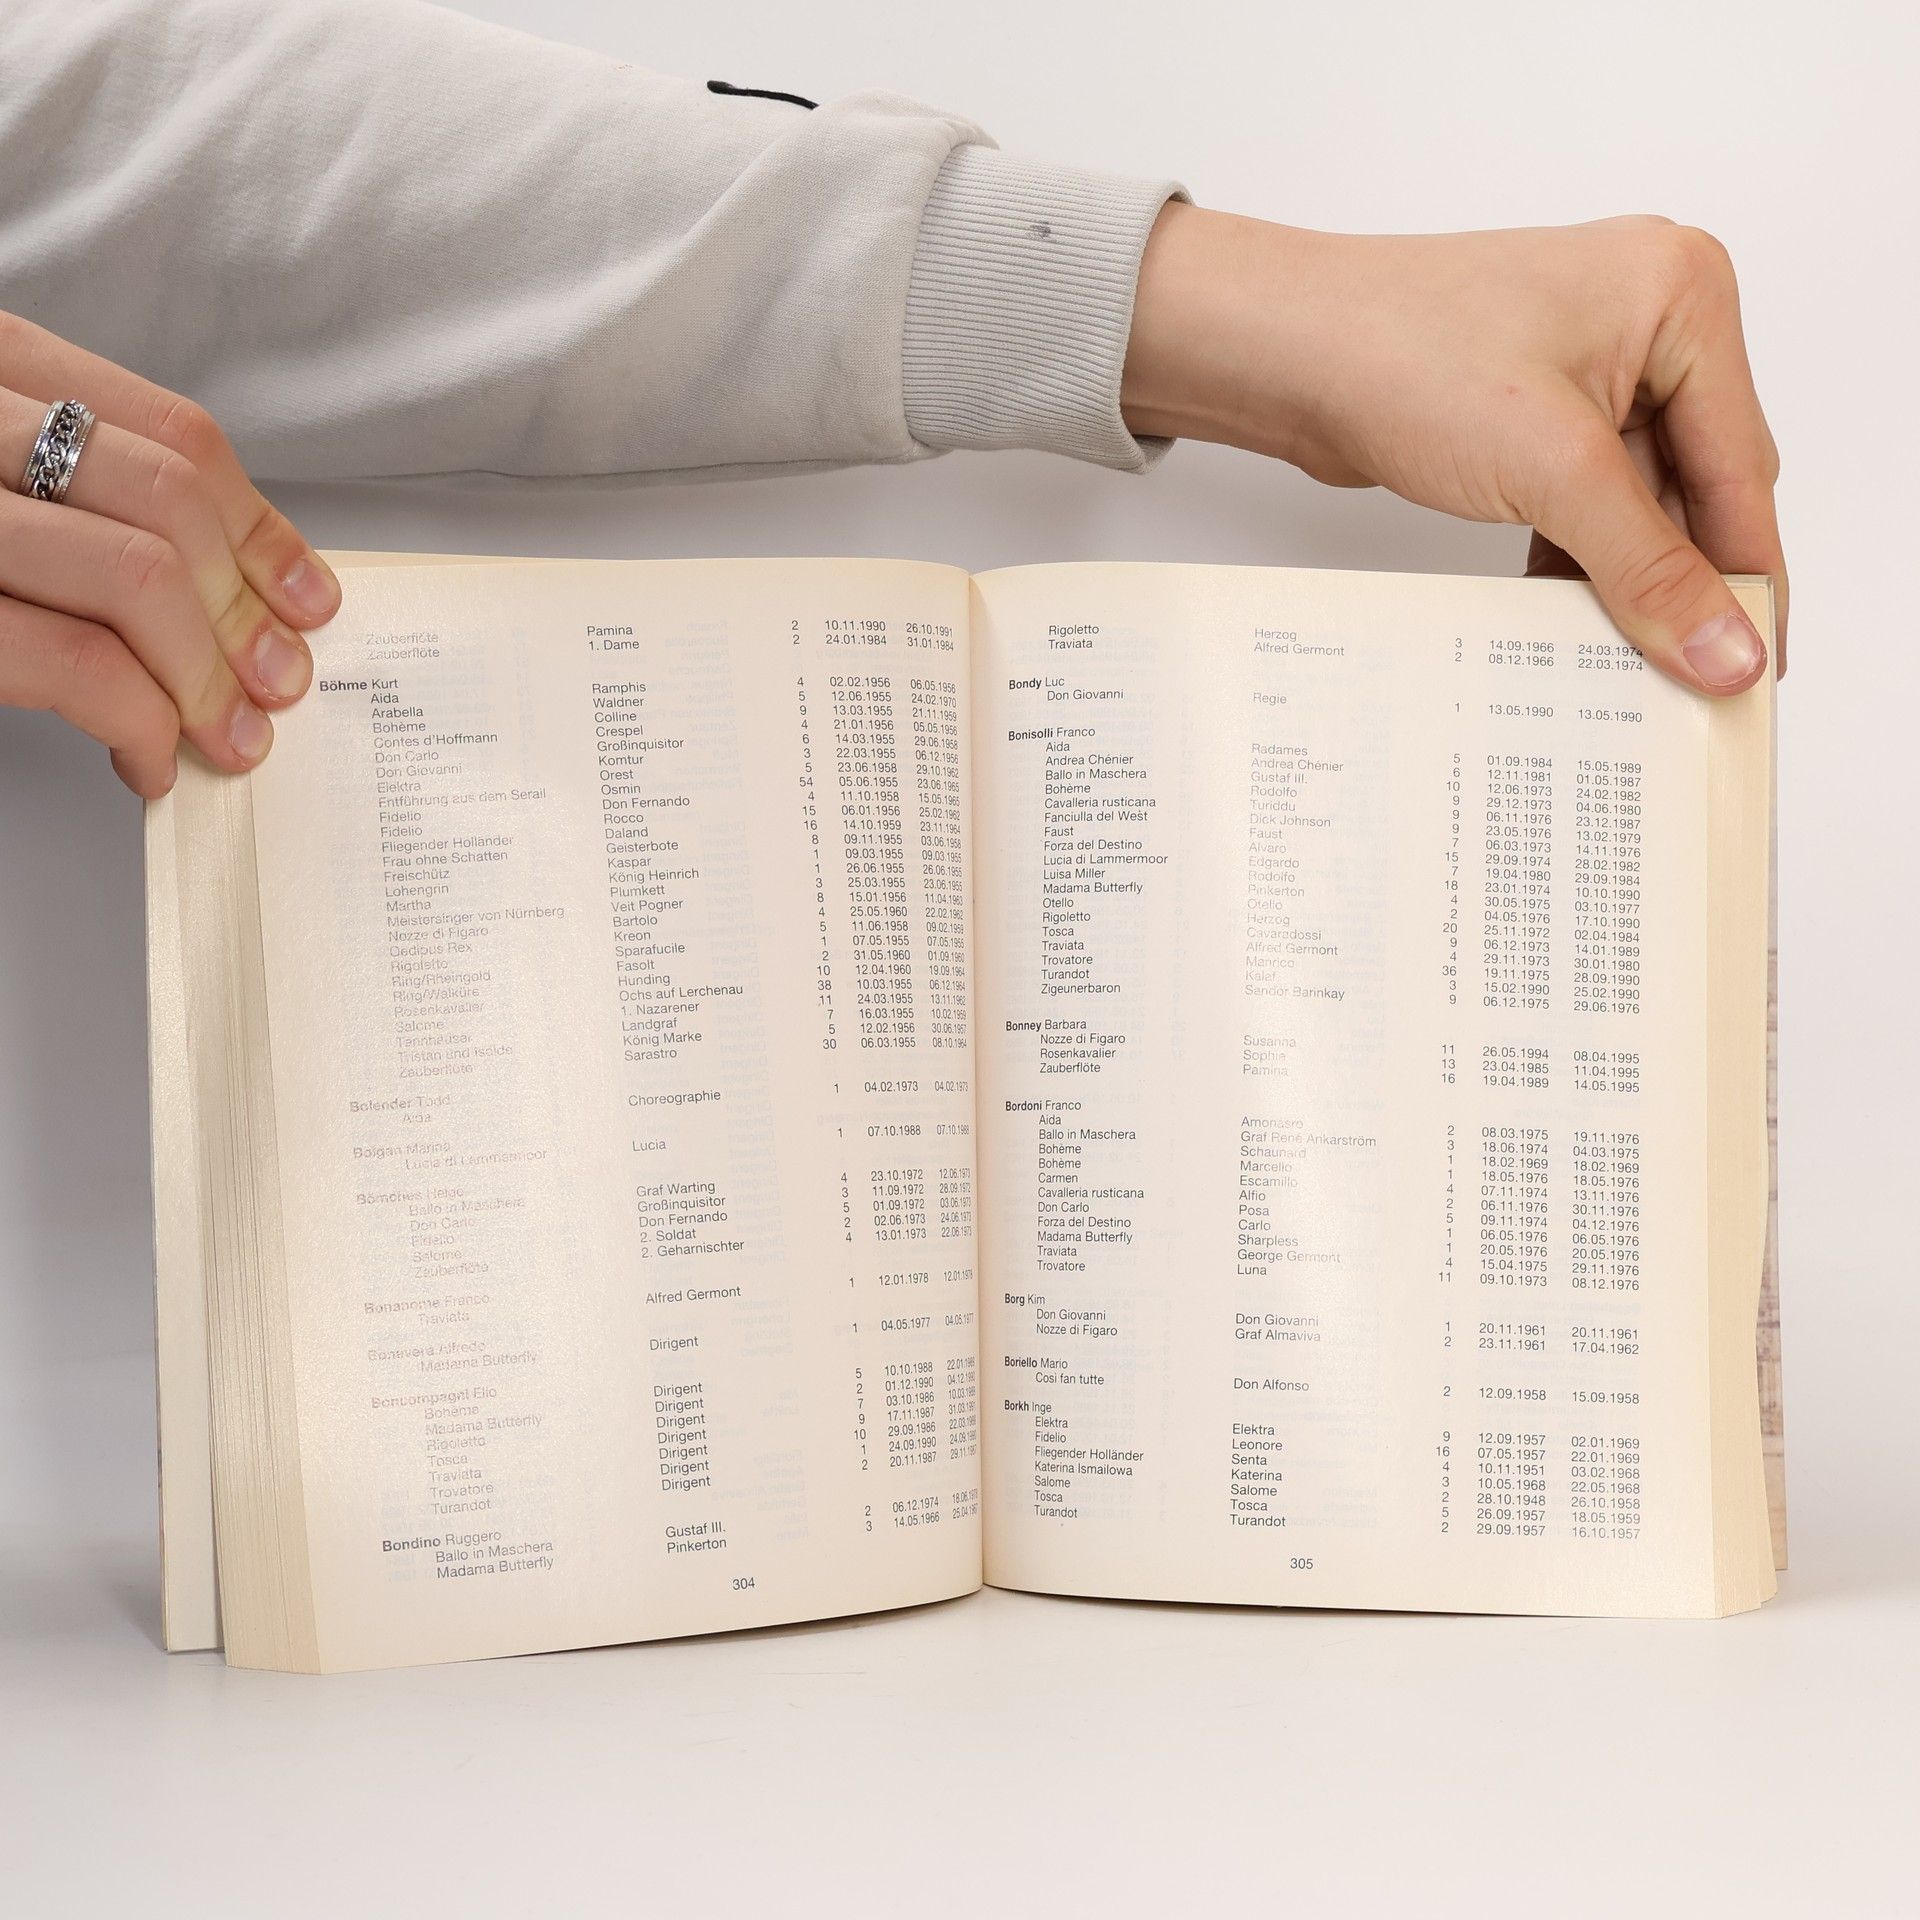 Zauberflöte Pamina 2 10.11.1990 26.10.1991
Zauberflöte 1. Dame 2 24.01.1984 31.01.1984
Böhme Kurt
Aida Ramphis 4 02.02.1956 06.05.1956
Arabella Waldner 5 12.06.1955 24.02.1970
Bohème Colline 9 13.03.1955 21.11.1959
Contes d'Hoffmann Crespel 4 21.01.1956 05.05.1956
Don Carlo Großinquisitor 6 14.03.1955 29.06.1958
Don Giovanni Komtur 3 22.03.1955 06.12.1956
Elektra Orest 5 23.06.1958 29.10.1962
Entführung aus dem Serail Osmin 54 05.06.1955 23.06.1965
Fidelio Don Fernando 4 11.10.1958 15.05.1965
Fidelio Rocco 15 06.01.1956 25.02.1962
Fliegender Holländer Daland 16 14.10.1959 23.11.1964
Frau ohne Schatten Geisterbote 8 09.11.1955 03.06.1958
Freischütz Kaspar 1 09.03.1955 09.03.1955
Lohengrin König Heinrich 1 26.06.1955 26.06.1955
Martha Plumkett 3 25.03.1955 23.06.1955
Meistersinger von Nürnberg Veit Pogner 8 15.01.1956 11.04.1963
Nozze di Figaro Bartolo 4 25.05.1960 22.02.1962
Oedipus Rex Kreon 5 11.06.1958 09.02.1959
Rigoletto Sparafucile 1 07.05.1955 07.05.1955
Ring/Rheingold Fasolt 2 31.05.1960 01.09.1960
Ring/Walküre Hunding 10 12.04.1960 19.09.1964
Rosenkavalier Ochs auf Lerchenau 38 10.03.1955 06.12.1964
Salome 1. Nazarener 11 24.03.1955 13.11.1962
Tannhäuser Landgraf 7 16.03.1955 10.02.1959
Tristan und Isolde König Marke 5 12.02.1956 30.06.1957
Zauberflöte Sarastro 30 06.03.1955 08.10.1964
Bolender Todd
Aida Choreographie 1 04.02.1973 04.02.1973
Bolgan Marina
Lucia di Lammermoor Lucia 1 07.10.1988 07.10.1988
Bömches Helge
Ballo in Maschera Graf Warting 4 23.10.1972 12.06.1973
Don Carlo Großinquisitor 3 11.09.1972 28.09.1972
Fidelio Don Fernando 5 01.09.1972 03.06.1973
Salome 2. Soldat 2 02.06.1973 24.06.1973
Zauberflöte 2. Geharnischter 4 13.01.1973 22.06.1973
Bonanome Franco
Traviata Alfred Germont 1 12.01.1978 12.01.1978
Bonavera Alfredo
Madama Butterfly Dirigent 1 04.05.1977 04.05.1977
Boncompagni Elio
Bohème Dirigent 5 10.10.1988 22.01.1989
Madama Butterfly Dirigent 2 01.12.1990 04.12.1990
Rigoletto Dirigent 7 03.10.1986 10.03.1989
Tosca Dirigent 9 17.11.1987 31.03.1991
Traviata Dirigent 10 29.09.1986 22.03.1988
Trovatore Dirigent 1 24.09.1990 24.09.1990
Turandot Dirigent 2 20.11.1987 29.11.1987
Bondino Ruggero
Ballo in Maschera Gustaf III. 2 06.12.1974 18.06.1975
Madama Butterfly Pinkerton 3 14.05.1966 25.04.1967
304
Rigoletto Herzog 3 14.09.1966 24.03.1974
Traviata Alfred Germont 2 08.12.1966 22.03.1974
Bondy Luc
Don Giovanni Regie 1 13.05.1990 13.05.1990
Bonisolli Franco
Aida Radames 5 01.09.1984 15.05.1989
Andrea Chénier Andrea Chénier 6 12.11.1981 01.05.1987
Ballo in Maschera Gustaf III. 10 12.06.1973 24.02.1982
Bohème Rodolfo 9 29.12.1973 04.06.1980
Cavalleria rusticana Turiddu 9 06.11.1976 23.12.1987
Fanciulla del West Dick Johnson 9 23.05.1976 13.02.1979
Faust Faust 7 06.03.1973 14.11.1976
Forza del Destino Alvaro 15 29.09.1974 28.02.1982
Lucia di Lammermoor Edgardo 7 19.04.1980 29.09.1984
Luisa Miller Rodolfo 18 23.01.1974 10.10.1990
Madama Butterfly Pinkerton 4 30.05.1975 03.10.1977
Otello Otello 2 04.05.1976 17.10.1990
Rigoletto Herzog 20 25.11.1972 02.04.1984
Tosca Cavaradossi 9 06.12.1973 14.01.1989
Traviata Alfred Germont 4 29.11.1973 30.01.1980
Trovatore Manrico 36 19.11.1975 28.09.1990
Turandot Kalaf 3 15.02.1990 25.02.1990
Zigeunerbaron Sandor Barinkay 9 06.12.1975 29.06.1976
Bonney Barbara
Nozze di Figaro Susanna 11 26.05.1994 08.04.1995
Rosenkavalier Sophie 13 23.04.1985 11.04.1995
Zauberflöte Pamina 16 19.04.1989 14.05.1995
Bordoni Franco
Aida Amonasro 2 08.03.1975 19.11.1976
Ballo in Maschera Graf René Ankarström 3 18.06.1974 04.03.1975
Bohème Schaunard 1 18.02.1969 18.02.1969
Bohème Marcello 1 18.05.1976 18.05.1976
Carmen Escamillo 4 07.11.1974 13.11.1976
Cavalleria rusticana Alfio 2 06.11.1976 30.11.1976
Don Carlo Posa 5 09.11.1974 04.12.1976
Forza del Destino Carlo 1 06.05.1976 06.05.1976
Madama Butterfly Sharpless 1 20.05.1976 20.05.1976
Traviata George Germont 4 15.04.1975 29.11.1976
Trovatore Luna 11 09.10.1973 08.12.1976
Borg Kim
Don Giovanni Don Giovanni 1 20.11.1961 20.11.1961
Nozze di Figaro Graf Almaviva 2 23.11.1961 17.04.1962
Boriello Mario
Cosi fan tutte Don Alfonso 2 12.09.1958 15.09.1958
Borkh Inge
Elektra Elektra 9 12.09.1957 02.01.1969
Fidelio Leonore 16 07.05.1957 22.01.1969
Fliegender Holländer Senta 4 10.11.1951 03.02.1968
Katerina Ismailowa Katerina 3 10.05.1968 22.05.1968
Salome Salome 2 28.10.1948 26.10.1958
Tosca Tosca 5 26.09.1957 18.05.1959
Turandot Turandot 2 29.09.1957 16.10.1957
305